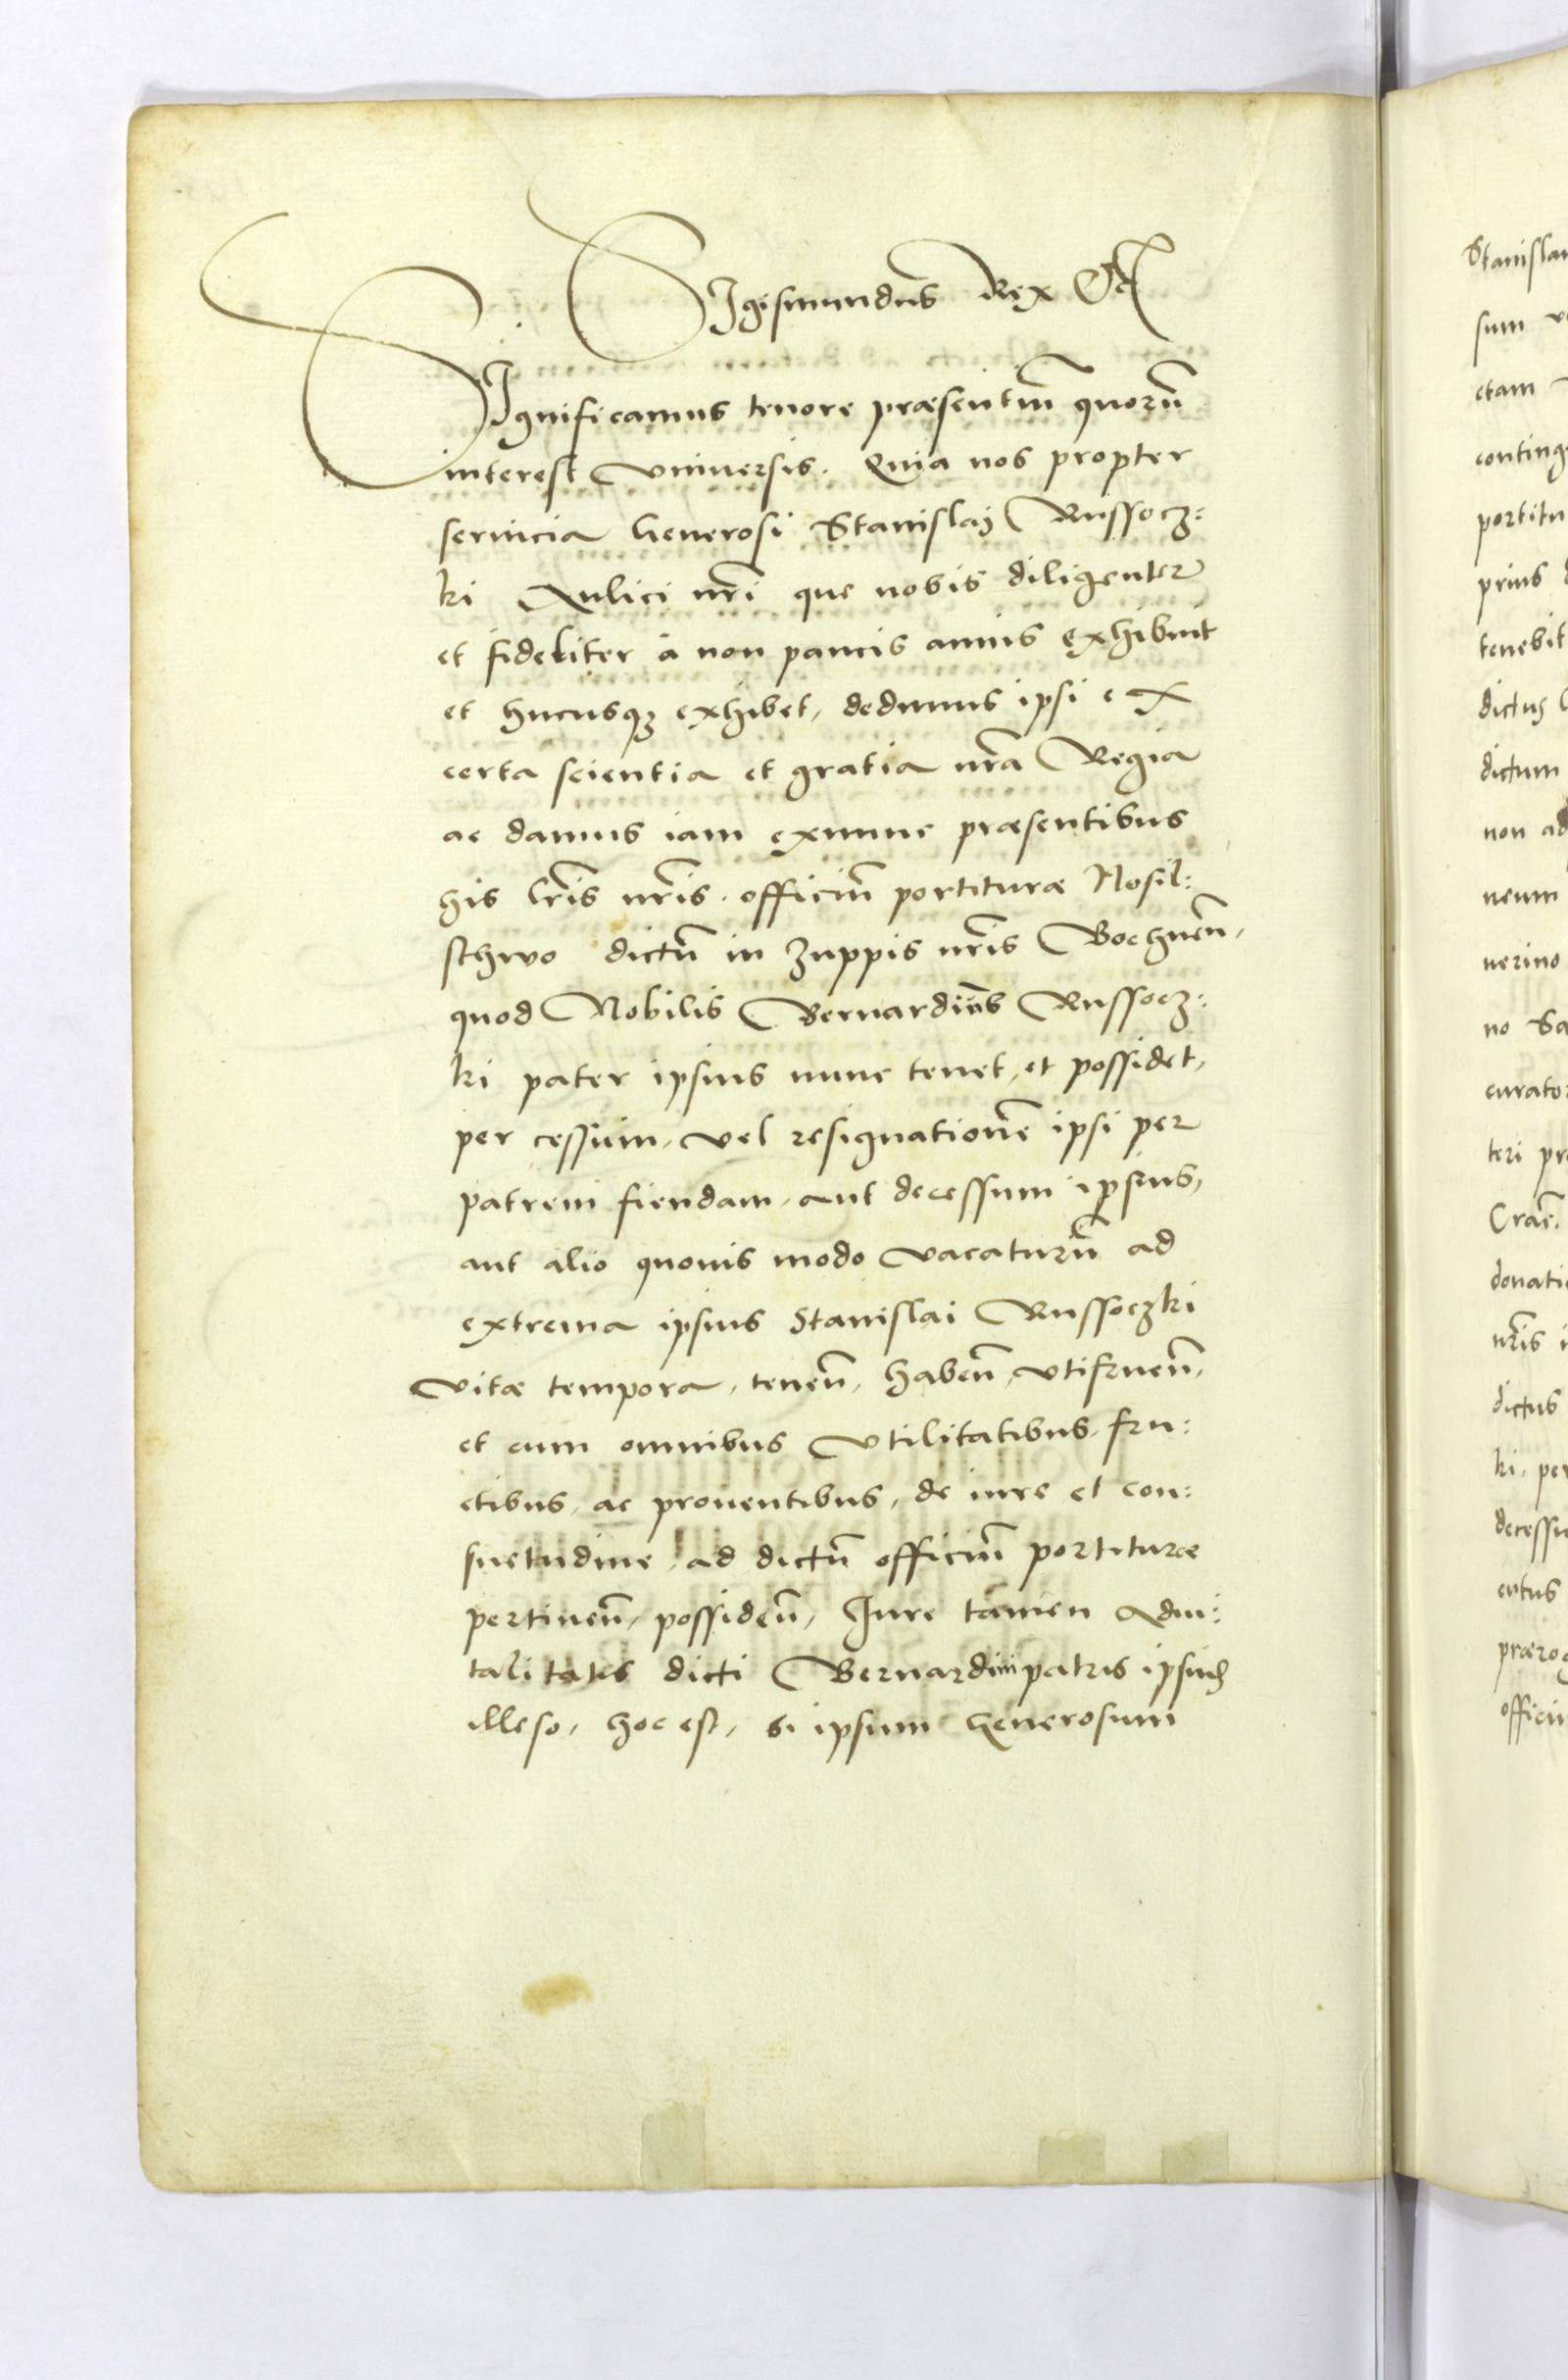 SIgismundus Rex Etc̃
SIgnificamus tenore præsentiũ quorũ
interest vniuersis. Quia nos propter
seruicia Generosi Stanislaj Russocz:
ki Aulici nr̃i que nobis diligenter
et fideliter à non paucis annis exhibuit
et hucusq3 exhibet, dedimus ipsi ex
certa scientia et gratia nr̃a Regia
ac damus iam exnunc præsentibus
his lr̃is nr̃is. officiũ portituræ Nosil:
sthwo dictũ in Zuppis nr̃is Bochneñ,
quod Nobilis Bernardinũs Russocz:
ki pater ipsius nunc tenet, et possidet,
per cessum, vel resignationẽ ipsi per
patrem fiendam, aut decessum ipsius,
aut alio quouis modo vacaturũ ad
extrema ipsius Stanislai Russoczki
vitæ tempora, teneñ, habeñ, vtifrueñ,
et cum omnibus vtilitatibus, fru:
ctibus, ac prouentibus, de iure et con:
suetudine, ad dictũ officiũ portituræ
pertineñ, possideñ, Iure tamen Adui:
talitatis dicti Bernardini patris ipsius
illeso, hoc est, si ipsum Generosum
Stanisla
sum
etam
conting
portitu
prius
tenebit
dictus
dictum
non ad
neum
uerino
no Sa
curator
teri pr
Crac̃.
donati
nr̃is i
dictus
ki, per
decessu
entus
prærog
officiu